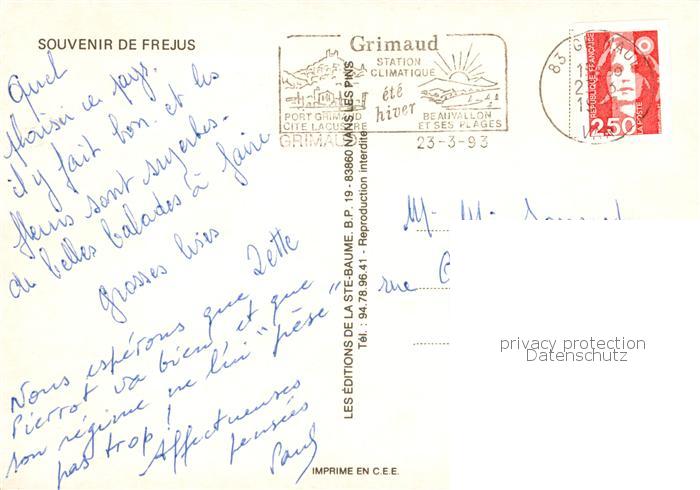 SOUVENIR DE FREJUS
Quel
plaisir ce pays.
il y fait bon. et les
fleurs sont superbes.
de belles balades à faire
Grosses bises
Zette
Nous espérons que
Pierrot va bien et que
son régime ne lui "pèse"
pas trop !
Affectueuses
pensées
Paul
LES ÉDITIONS DE LA STE-BAUME. B.P. 19 - 83860 NANS LES PINS
Tél. : 94.78.96.41 - Reproduction interdite
IMPRIME EN C.E.E.
Grimaud
STATION
CLIMATIQUE
été
hiver
PORT GRIMAUD
CITE LACUSTRE
BEAUVALLON
ET SES PLAGES
GRIMAUD
23-3-93
83 GRIMAUD
VAR
REPUBLIQUE FRANÇAISE
2,50
LA POSTE
M. M.
rue
privacy protection
Datenschutz